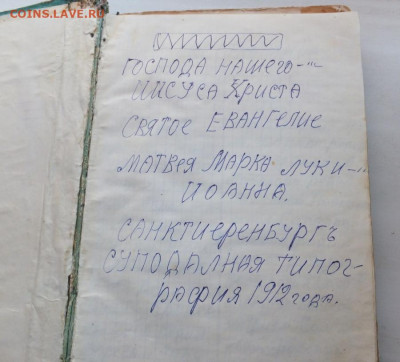 COINS.LAVE.RU
ГОСПОДА НАШЕГО-"-
ИИСУСА ХРИСТА
СВЯТОЕ ЕВАНГЕЛИЕ
МАТВЕЯ МАРКА ЛУКИ-"-
ИОАННА.
САНКТИЕРЕНБУРГЪ
СУПОДАЛНАЯ ТИПОГ-
РАФИЯ 1912 года.